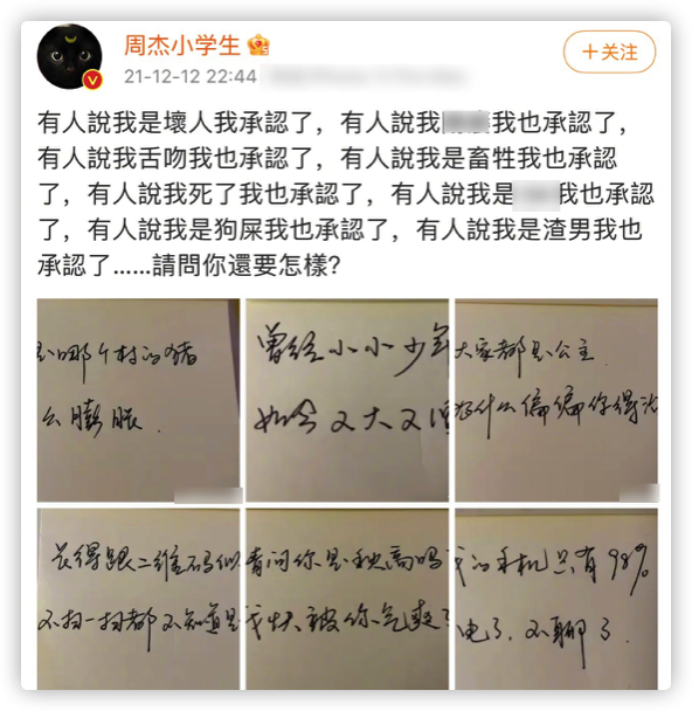 周杰小学生
+关注
21-12-12 22:44
有人說我是壞人我承認了，有人說我我也承認了，
有人說我舌吻我也承認了，有人說我是畜牲我也承認
了，有人說我死了我也承認了，有人說我是我也承認
了，有人說我是狗屎我也承認了，有人說我是渣男我也
承認了……請問你還要怎樣?
是哪个村的猪
么膨胀.
曾经小小少年
如今又大又
大家都是公主.
为什么偏偏你得
长得跟二维码似
不扫一扫都不知道是
请问你是秋高吗
我快被你气爽了
我的手机只有98%
电了.不聊了.